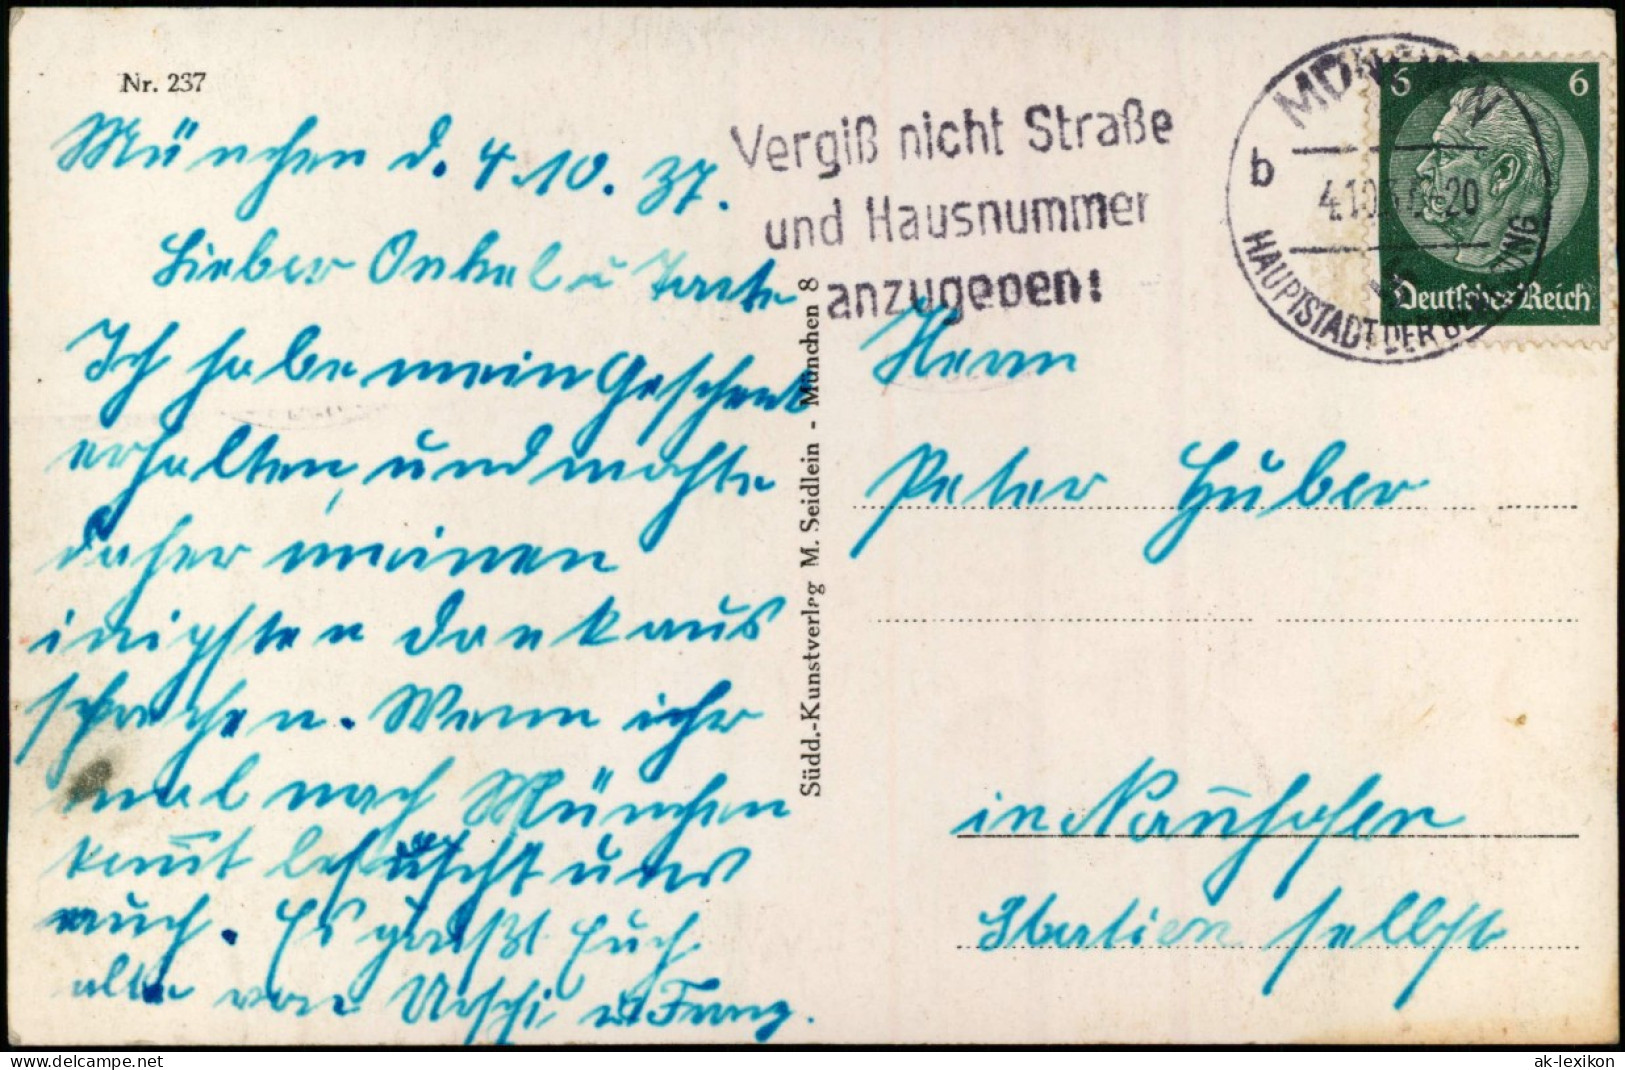 Nr. 237
München d. 4.10.37.
Lieber Onkel u Tante
Ich habe mein Geschenk
erhalten, und möchte
daher meinen
inigsten Dank aus
sprechen. Wenn ihr
mal nach München
kom̄t besuscht uns
auch. Es grüßt Euch
alle von Urschi u Franz.
Südd.-Kunstverlag M. Seidlein - München 8
Vergiß nicht Straße
und Hausnummer
anzugeben!
MÜNCHEN
b
4.10.37 20
HAUPTSTADT DER BEWEGUNG
6 6
Deutsches Reich
Herrn
Peter Huber
in Naunhofen
Station selbst
hippostcard.com
ak-lexikon